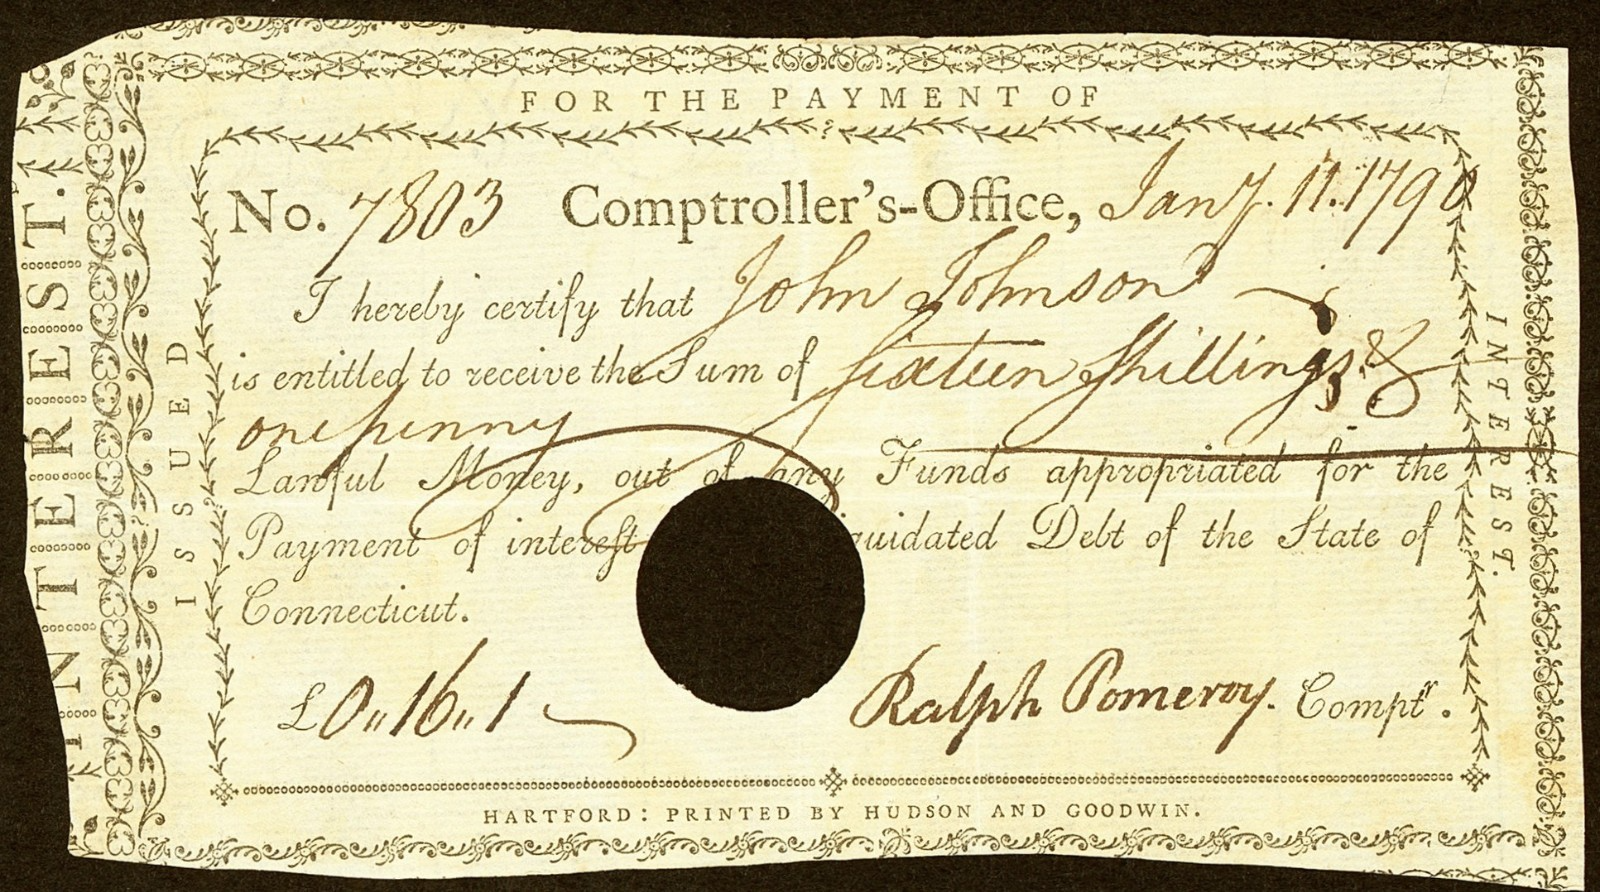 FOR THE PAYMENT OF
INTEREST.
ISSUED
No. 7803 Comptroller's-Office, Jany. 11. 1790
I hereby certify that John Johnson
is entitled to receive the Sum of Sixteen Shillings &
one penny
Lawful Money, out of any Funds appropriated for the
Payment of interest quidated Debt of the State of
Connecticut.
£0,, 16,, 1
Ralph Pomeroy. Comptr.
INTEREST.
HARTFORD: PRINTED BY HUDSON AND GOODWIN.